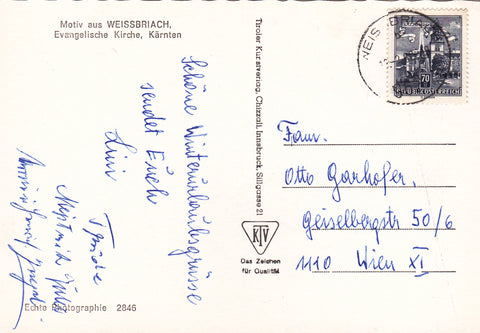 Motiv aus WEISSBRIACH,
Evangelische Kirche, Kärnten
Schöne Winterurlaubsgrüsse
sendet Euch
Echte Photographie 2846
Tiroler Kunstverlag, Chizzali, Innsbruck, Sillgasse 21
KTV
Das Zeichen
für Qualität
WEISSBRI
70
REPUBLIK ÖSTERREICH
Fam.
Otto Garhofer,
Geiselbergstr 50/6
1110 Wien XI